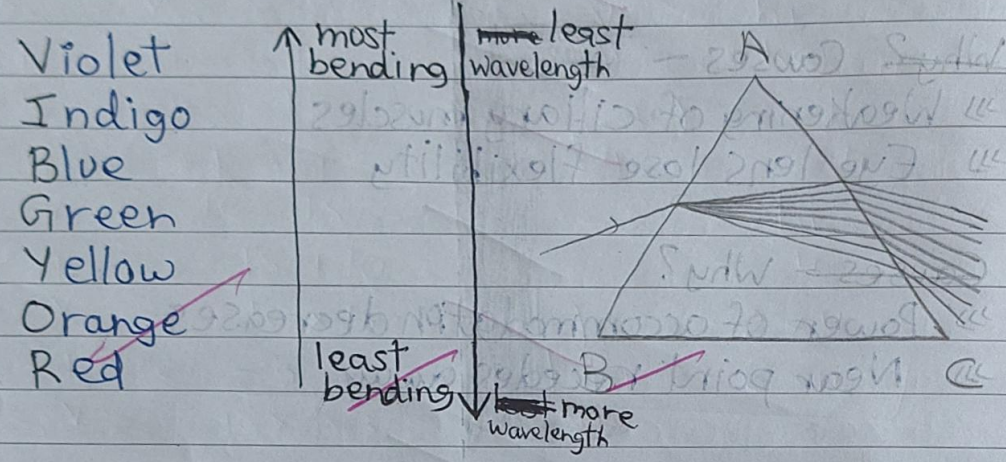 Violet
Indigo
Blue
Green
Yellow
Orange
Red
most
bending
least
bending
least
wavelength
more
wavelength
A
B
C